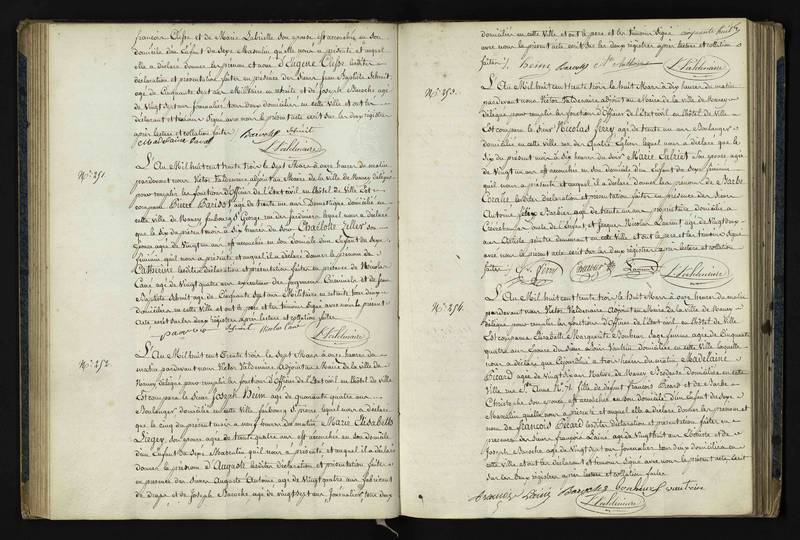 françois Olisse et de Marie Labrielle son epouse est accouchée en son
domicile d'un Enfant du Sexe Masculin qu'elle nous a présenté et auquel
elle a déclaré donner les prénom et nom d'Eugène Olisse lesdites
déclaration et présentation faites en présence des Sieurs Jean Baptiste Schmit
agé de Cinquante Sept ans Militaire en retraite et de Joseph Baroche agé
de Vingt Sept ans Journalier tous deux domiciliés en cette Ville et ont les
déclarant et témoins Signé avec nous le présent acte écrit sur les deux registres
après lecture et collation faites
Baroche Schmit
L. Valdenaire
N.° 251.
L'An Mil huit cent trente trois le Sept Mars à onze heures du matin
pardevant nous Victor Valdenaire adjoint au Maire de la Ville de Nancy délégué
pour remplir les fonctions d'Officier de l'Etat civil en l'hôtel de Ville Est
comparu Pierre Barisot agé de trente un ans Domestique domicilié en
cette Ville de Nancy faubourg St Georges rue des Jardiniers lequel nous a déclaré
que le Six du présent mois à Six heures du Soir Charlotte Zeller son
épouse agée de Vingt un ans est accouchée en son domicile d'un Enfant du Sexe
féminin qu'il nous a présenté et auquel il a déclaré donner le prénom de
Catherine lesdites déclaration et présentation faites en présence de Nicolas
Cané agé de Vingt quatre ans exécuteur des Jugemens Criminels et de Jean
Baptiste Schmit agé de Cinquante Sept ans Militaire en retraite tous deux
domiciliés en cette Ville et ont le père et les témoins Signé avec nous le présent
Acte écrit sur les deux registres après lecture et collation faites
Schmit Nicolas Cané
L. Valdenaire
N.° 252
L'An Mil huit cent Trente trois le Sept Mars à onze heures du
matin pardevant nous Victor Valdenaire Adjoint au Maire de la Ville de
Nancy délégué pour remplir les fonctions d'Officier de l'Etat Civil en l'hôtel de Ville
Est comparu le Sieur Joseph Heim agé de quarante quatre ans
Boulanger domicilié en cette Ville faubourg St pierre lequel nous a déclaré
que le cinq du présent mois à neuf heures du matin Marie Elisabeth
Lagey son épouse agée de trente quatre ans est accouchée en son domicile
d'un Enfant du Sexe Masculin qu'il nous a présenté et auquel il a déclaré
donner le prénom d'Auguste lesdites déclaration et présentation faites
en présence des Sieurs Auguste Antoine agé de Vingt quatre ans fabricant
de Draps et de Joseph Baroche agé de Vingt Sept ans Journalier tous deux
domiciliés en cette Ville et ont le père et les témoins Signé
avec nous le présent acte écrit sur les deux registres après lecture et collation
faites
Heim Baroche Ate Antoine L. Valdenaire
N.° 253.
L'An Mil huit cent trente trois le huit Mars à dix heures du matin
pardevant nous Victor Valdenaire adjoint au Maire de la Ville de Nancy
délégué pour remplir les fonctions d'Officier de l'Etat civil en l'hôtel de Ville
Est comparu le Sieur Nicolas Ferry agé de trente un ans Boulanger
domicilié en cette Ville rue des Quatre Eglises lequel nous a déclaré que le
Six du présent mois à dix heures du soir Marie Labriet Son épouse agée
de Vingt un ans est accouchée en son domicile d'un Enfant du Sexe féminin
qu'il nous a présenté et auquel il a déclaré donner les prénoms de Barbe
Coralie lesdites déclaration et présentation faites en présence des Sieurs
Antoine agé de trente un ans propriétaire domicilié à
oncle de l'enfant et Jacques Nicolas Laurent agé de Vingt deux
ans Artiste peintre demeurant en cette Ville et ont le père et les témoins Signé
avec nous le présent acte écrit sur les deux registres après lecture et collation
faites
Ferry Laurent L. Valdenaire
N.° 254.
L'An Mil huit cent trente trois le huit Mars à onze heures du matin
pardevant nous Victor Valdenaire Adjoint au Maire de la ville de Nancy
délégué pour remplir les fonctions d'Officier de l'Etat civil en l'hôtel de Ville
Est comparue Elisabeth Marguerite Bonheur Sage femme agée de Cinquante
quatre ans épouse du Sieur Vautrin domiciliée en cette Ville laquelle
nous a déclaré que Cejourd'hui à trois heures du matin Madelaine
Picard agée de Vingt Six ans Native de Nancy Brodeuse domiciliée en cette
Ville rue Ste Anne fille de défunt François Picard et de Barbe
Christophe Son épouse est accouchée en son domicile d'un Enfant du Sexe
Masculin qu'elle nous a présenté et auquel elle a déclaré donner les prénom et
nom de François Picard lesdites déclaration et présentation faites en
présence des Sieurs françois agé de Vingt huit ans et de
Joseph Baroche agé de Vingt Sept ans Journalier tous deux domiciliés en
cette Ville et ont les déclarant et témoins Signé avec nous le présent acte écrit
sur les deux registres après lecture et collation faites
Baroche Bonheur f vautrin
L. Valdenaire